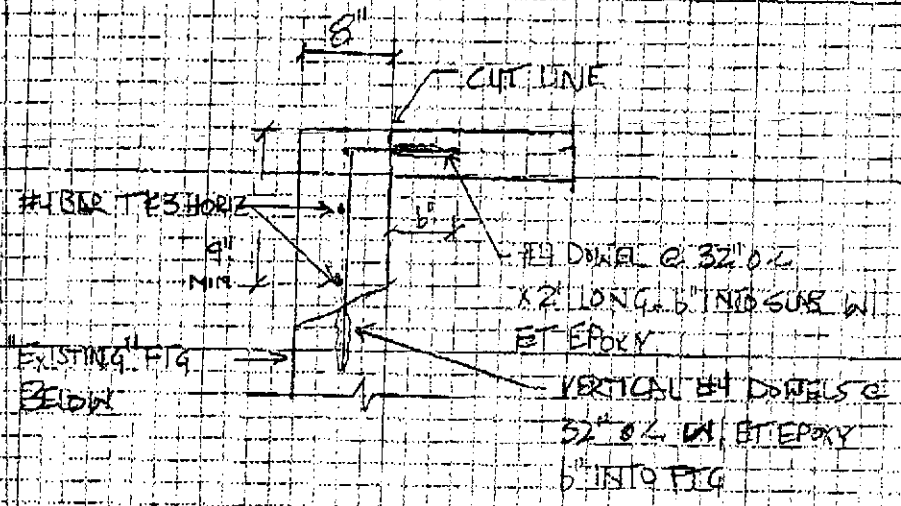 8"
CUT LINE
#4 BAR T&B HORIZ
9"
MIN
6"
#4 DOWEL @ 32" O.C.
X 2' LONG. 6" INTO SLAB W/
ET EPOXY
"EXISTING" FTG
BELOW
VERTICAL #4 DOWELS @
32" O.C. W/ ET EPOXY
6" INTO FTG